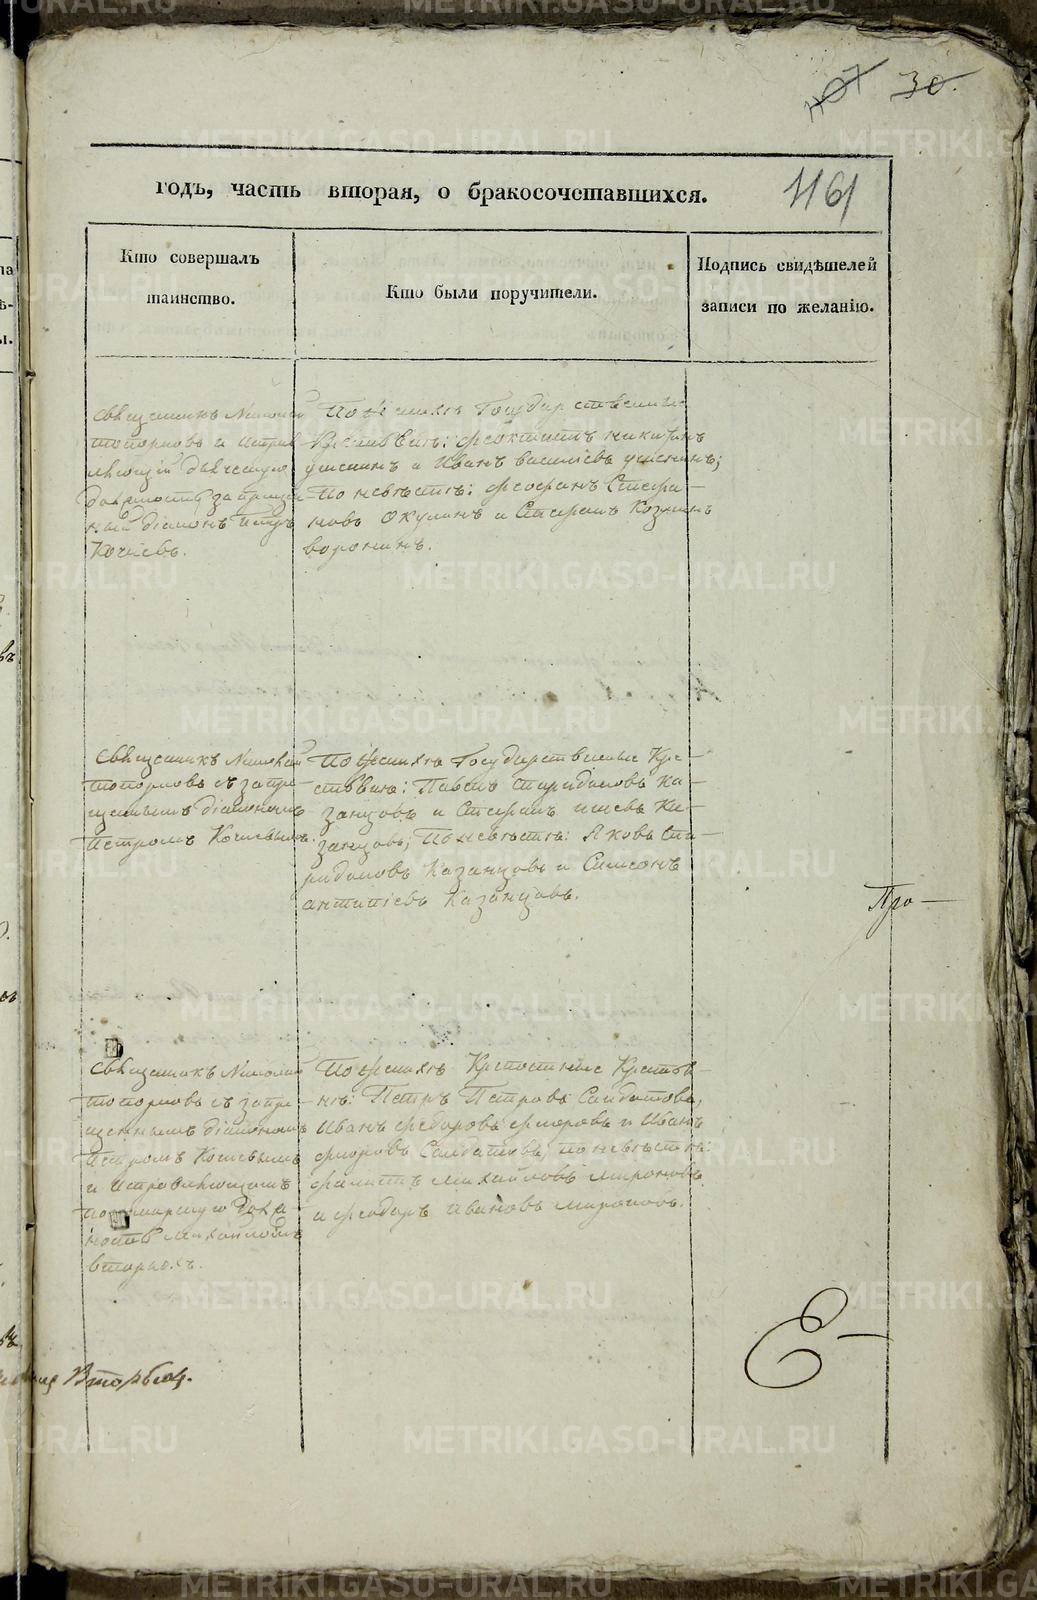 30.
1161
годъ, часть вторая, о бракосочетавшихся.
Кто совершалъ
таинство.
Кто были поручители.
Подпись свидѣтелей
записи по желанію.
Священникъ Николай
топорковъ и исправ
ляющій
должность запрещен
ной діаконъ Петръ
Кочневъ.
По женихѣ Государственные
Крестьяне: феоктистъ никитинъ
и Иванъ василіевъ
По невѣстѣ: феофанъ Стефа-
новъ Окулинъ и Стефанъ Козминъ
воронинъ.
Священникъ Николай
топорковъ съ запре-
щеннымъ діакономъ
Петромъ Кочневымъ.
По женихѣ Государственные Кре-
стьяне: Павелъ спиридоновъ ка-
занцовъ и Стефанъ Ка-
занцовъ; По невѣстѣ: Яковъ Спи-
ридоновъ Казанцовъ и Симеонъ
антипіевъ Казанцовъ.
Про-
Священникъ Николай
топорковъ съ запре-
щеннымъ діакономъ
Петромъ Кочневымъ
и исправляющимъ
пономарскую долж
ность михаиломъ
вторыхъ.
По женихѣ Крепостные Крестья-
нѣ: Петръ Петровъ Солдатовъ,
Иванъ федоровъ флоровъ и Иванъ
флоровъ Солдатовъ, по невѣстѣ:
филиппъ михайловъ мироновъ
и феодоръ ивановъ мироновъ.
Вторыхъ.